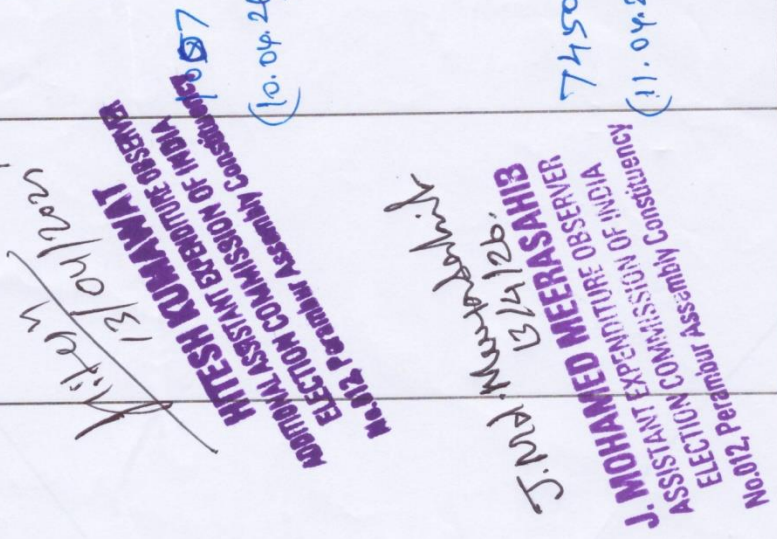 Hitesh
13/04/2026
HITESH KUMAWAT
ADDITIONAL ASSISTANT EXPENDITURE OBSERVER
ELECTION COMMISSION OF INDIA
No.012, Perambur Assembly Constituency
(10.04.2
J. Md. Meerasahib
13/4/26.
J. MOHAMED MEERASAHIB
ASSISTANT EXPENDITURE OBSERVER
ELECTION COMMISSION OF INDIA
No.012, Perambur Assembly Constituency
7450
(11.04.2